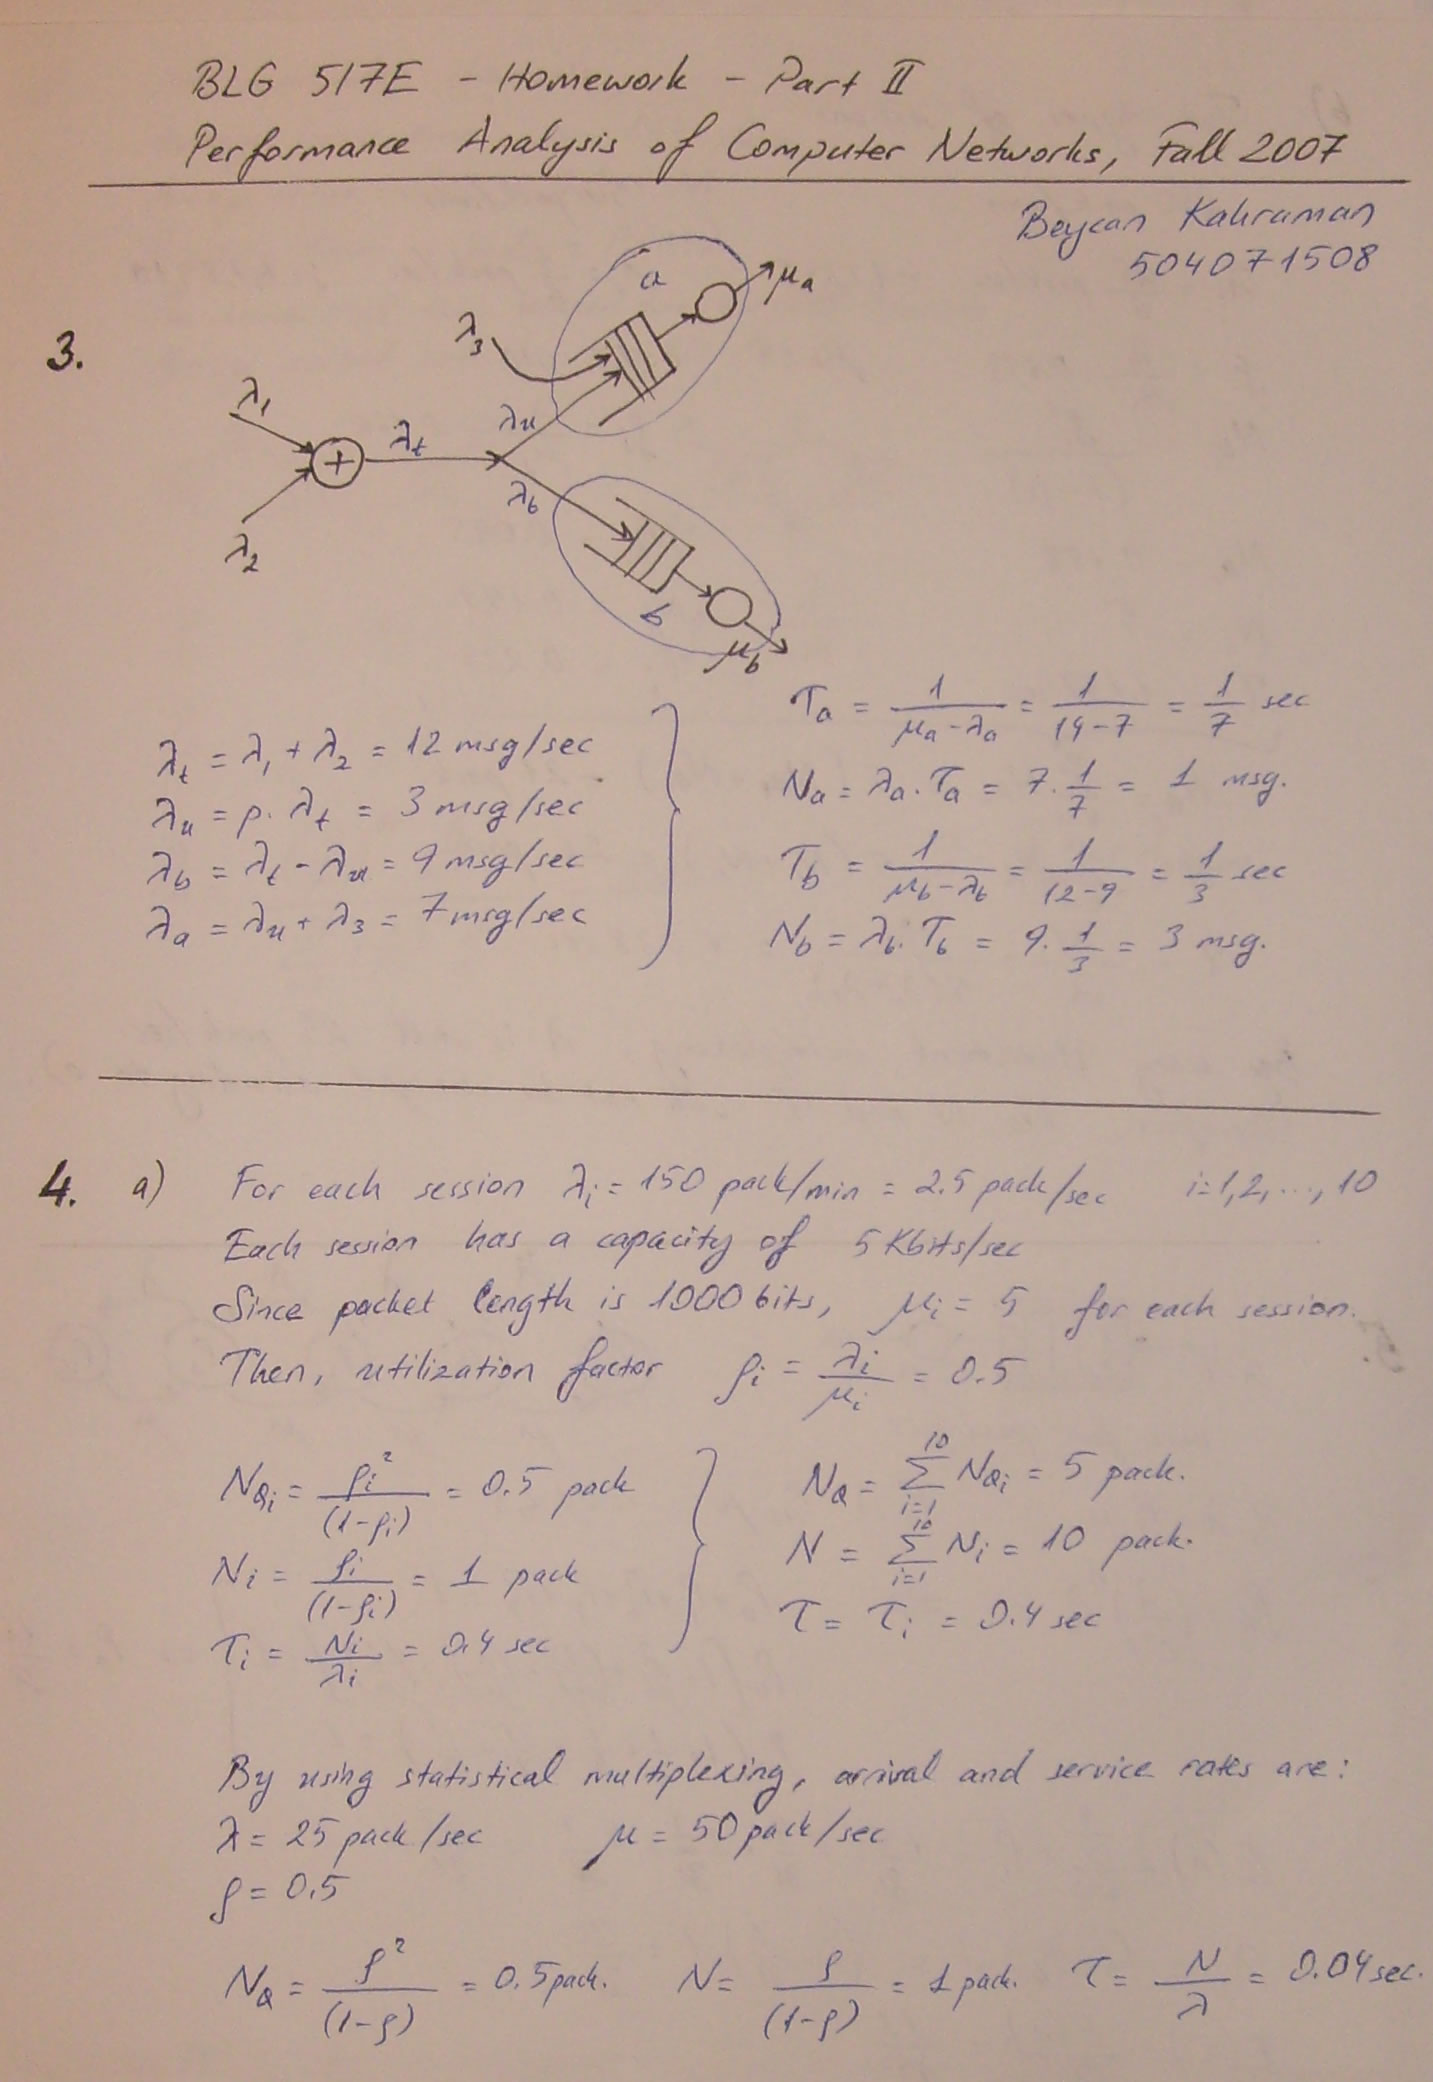 BLG 517E - Homework - Part II
Performance Analysis of Computer Networks, Fall 2007
Beycan Kahraman
504071508
3.
a
μa
λ3
λ1
λt
λu
λb
λ2
b
μb
λt = λ1 + λ2 = 12 msg/sec
λu = p. λt = 3 msg/sec
λb = λt - λu = 9 msg/sec
λa = λu + λ3 = 7 msg/sec
Ta = 1/(μa-λa) = 1/(14-7) = 1/7 sec
Na = λa. Ta = 7. 1/7 = 1 msg.
Tb = 1/(μb-λb) = 1/(12-9) = 1/3 sec
Nb = λb. Tb = 9. 1/3 = 3 msg.
4. a) For each session λi = 150 pack/min = 2.5 pack/sec i=1,2,...,10
Each session has a capacity of 5 Kbits/sec
Since packet length is 1000 bits, μi = 5 for each session.
Then, utilization factor ρi = λi/μi = 0.5
NQi = ρi²/(1-ρi) = 0.5 pack
Ni = ρi/(1-ρi) = 1 pack
Ti = Ni/λi = 0.4 sec
NQ = Σ(i=1..10) NQi = 5 pack.
N = Σ(i=1..10) Ni = 10 pack.
T = Ti = 0.4 sec
By using statistical multiplexing, arrival and service rates are:
λ = 25 pack/sec μ = 50 pack/sec
ρ = 0.5
NQ = ρ²/(1-ρ) = 0.5 pack. N = ρ/(1-ρ) = 1 pack. T = N/λ = 0.04 sec.